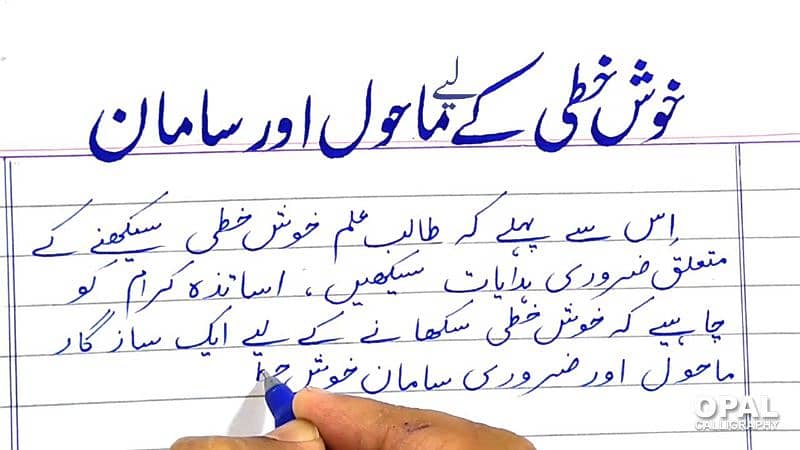 خوش خطی کے لیے ماحول اور سامان
اِس سے پہلے کہ طالب علم خوش خطی سیکھنے کے
متعلق ضروری ہدایات سیکھیں، اساتذہ کرام کو
چاہیے کہ خوش خطی سکھانے کے لیے ایک سازگار
ماحول اور ضروری سامان خوش خط
OPAL
CALLIGRAPHY